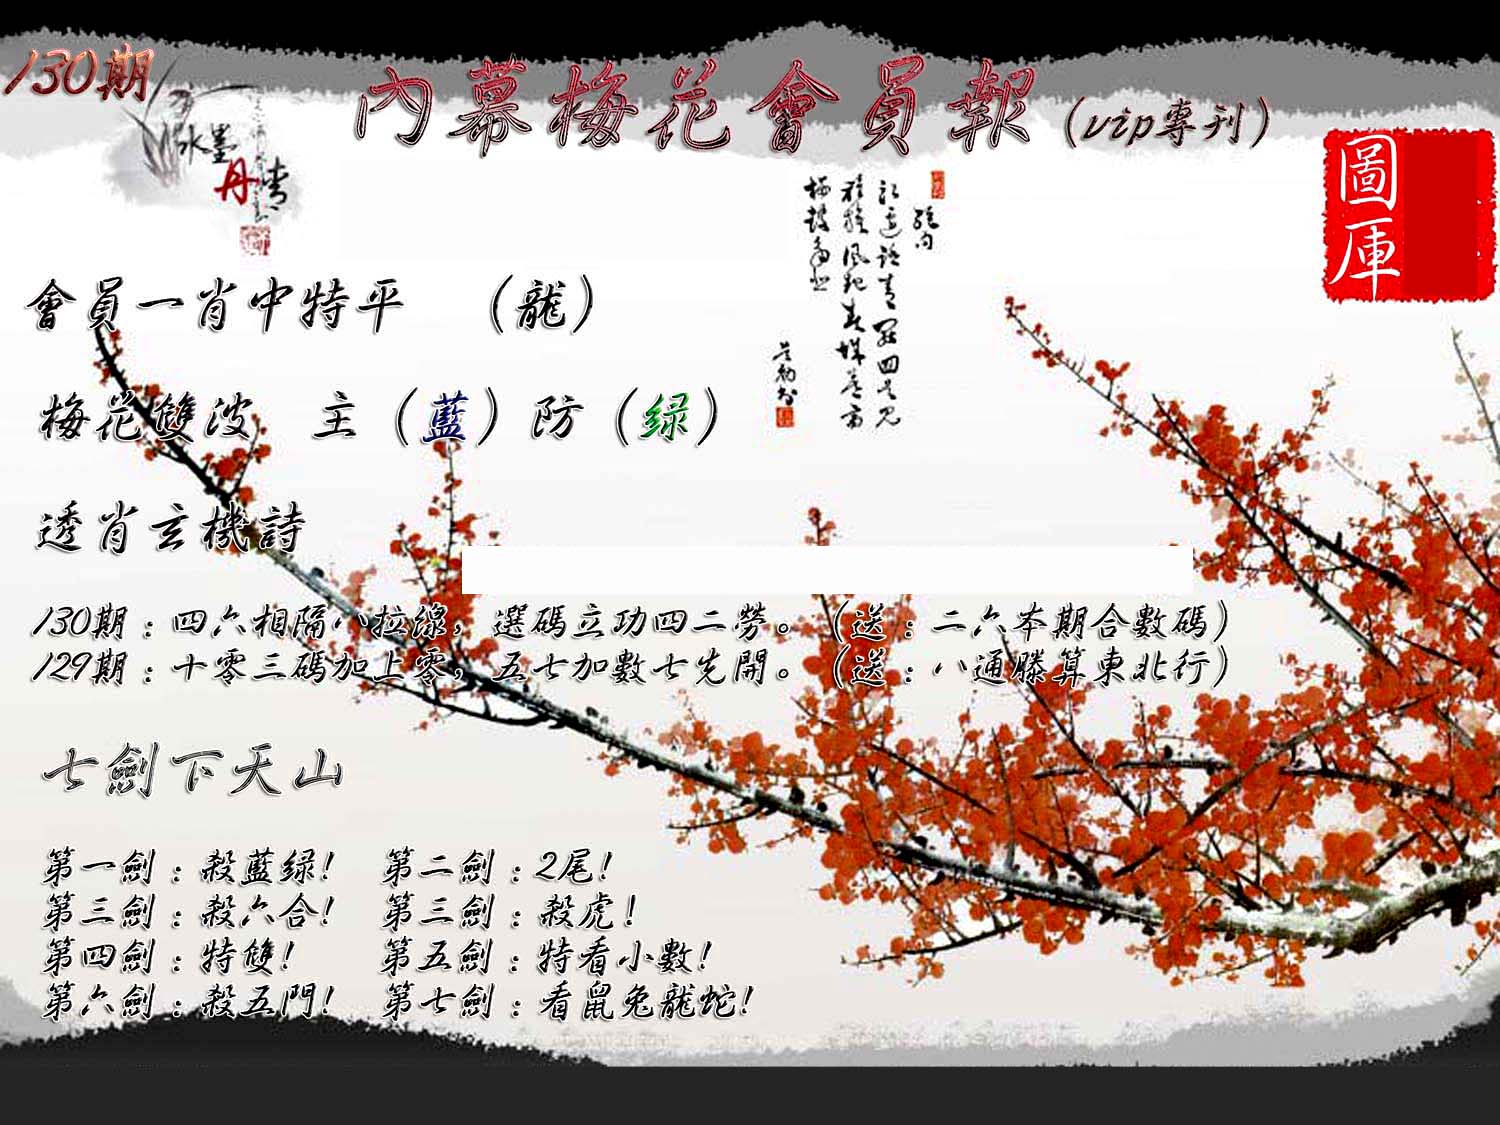 130期
內幕梅花會員報(vip專刊)
水墨
丹青
圖庫
會員一肖中特平 (龍)
梅花雙波 主(藍)防(绿)
透肖玄機詩
130期:四六相隔八拉綠,選碼立功四二勞。(送:二六本期合數碼)
129期:十零三碼加上零,五七加數七先開。(送:八通勝算東北行)
七劍下天山
第一劍:殺藍绿! 第二劍:2尾!
第三劍:殺六合! 第三劍:殺虎!
第四劍:特雙! 第五劍:特看小數!
第六劍:殺五門! 第七劍:看鼠兔龍蛇!